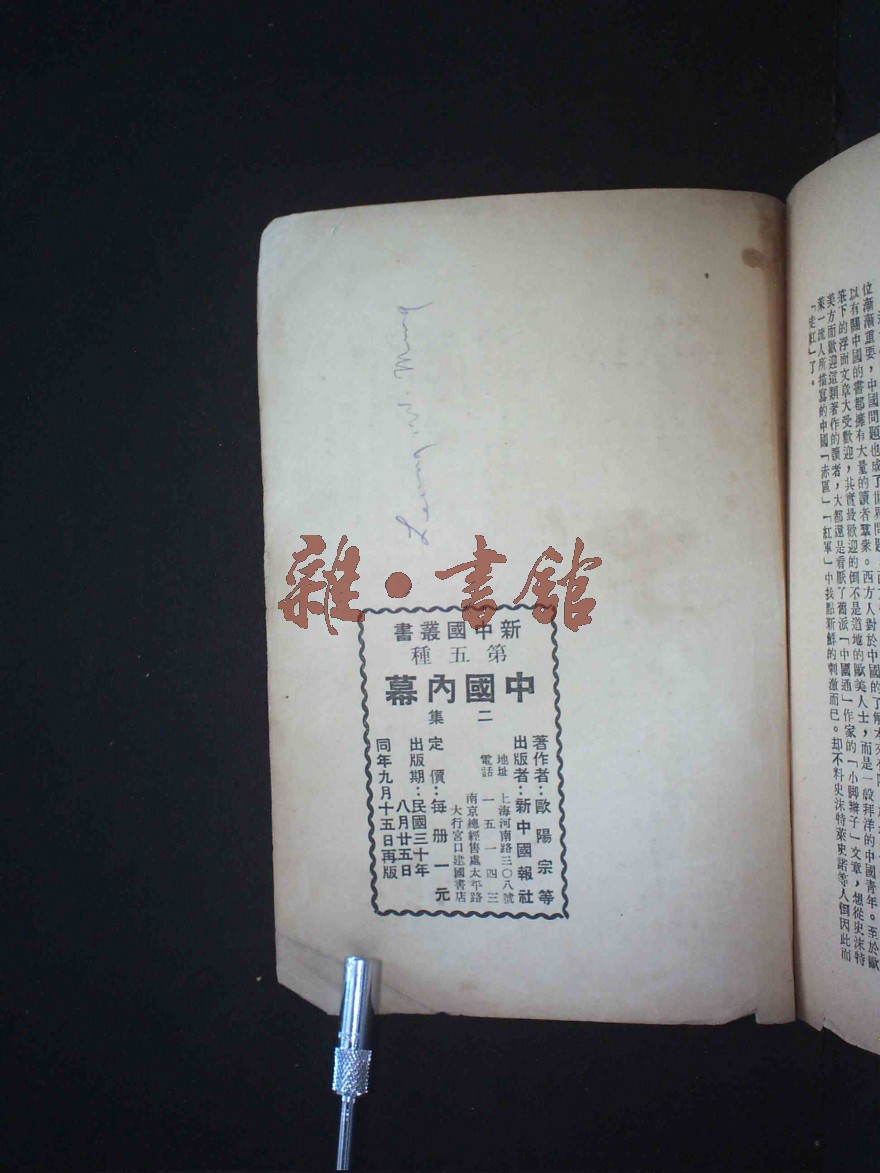 位漸漸重要，中國問題也成了世界問題
以有關中國的書都擁有大量的讀者羣衆。西方人對於中國的了解本來不
筆下的浮面文章大受歡迎，其實最歡迎的倒不是道地的歐美人士，而是一般拜洋的中國青年。至於歐
美方面歡迎這類著作的讀者，大都還是看厭了舊派「中國通」作家的「小脚辮子」文章，想從史沫特
萊一流人所描寫的中國「赤區」「紅軍」中找點新鮮的刺激而已。却不料史沫特萊史諾等人倒因此而
「走紅」了。
雜•書館
新中國叢書
第五種
中國內幕
二集
著作者：歐陽宗等
出版者：新中國報社
地址 上海河南路三〇八號
電話 一五一四三
南京總經售處太平路
大行宮口建國書店
定價：每册一元
出版期：民國三十年
八月廿五日
同年九月十五日再版